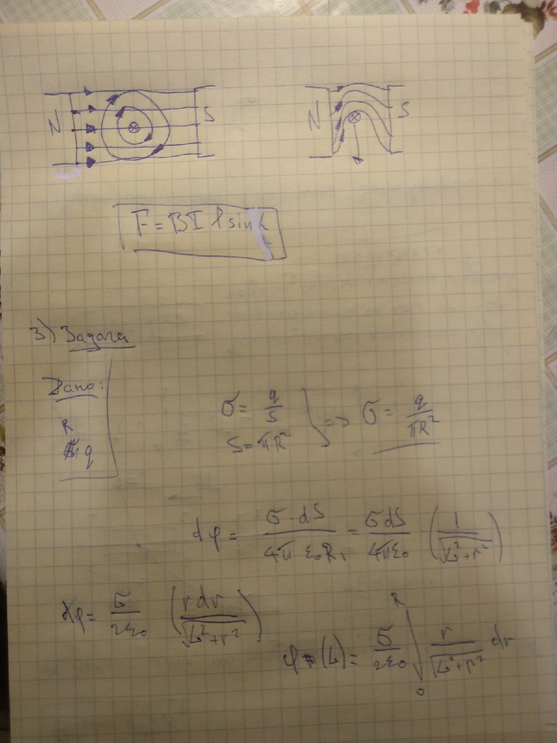 N S N S
F = BIl sinα
3) Задача
Дано:
R
q
σ = q/S
S = πR² } => σ = q/πR²
dφ = σ·dS/4πε₀R₁ = σdS/4πε₀ (1/√L²+r²)
dφ = σ/2ε₀ (rdr/√L²+r²)
φ(L) = σ/2ε₀ ∫₀ᴿ r/√L²+r² dr